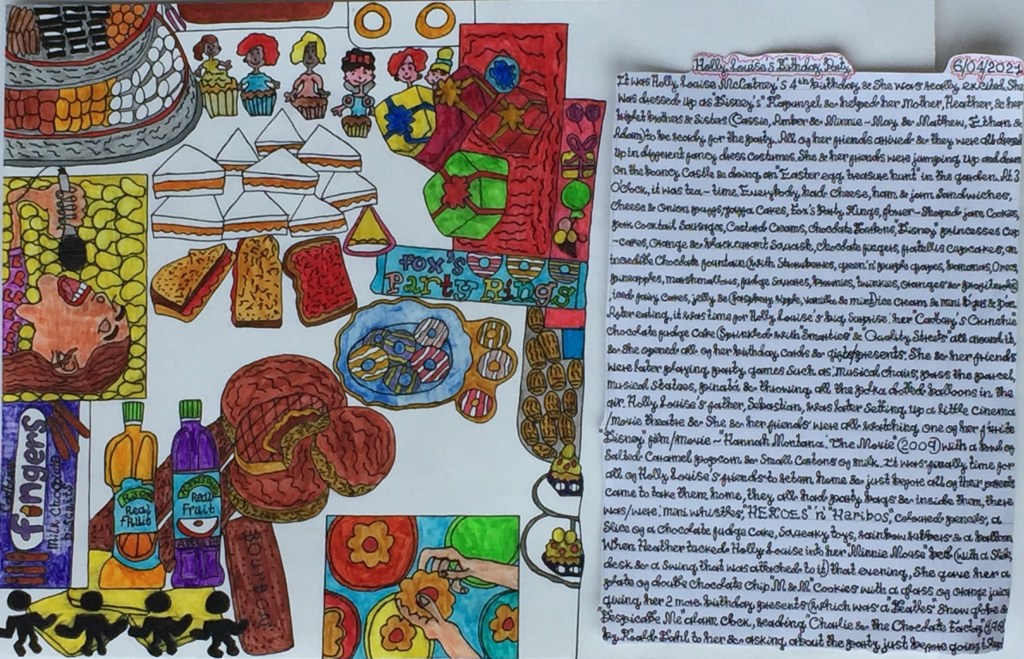 Holly Louise's Birthday Party
6/04/2021
It was Holly Louise McCartney's 4th birthday & She was really excited. She
was dressed up as Disney's "Rapunzel & helped her Mother, Heather, & her
eight brothers & Sisters (Cassia, Amber & Minnie-May & Matthew, Ethan &
Adam) to be ready for the party. All of her friends arrived & they were all dressed
up in different fancy dress costumes. She & her friends were jumping up and down
on the bouncy Castle & doing an "Easter egg treasure hunt" in the garden. At 3
O'Clock, it was tea-time. Everybody had Cheese, ham & jam Sandwiches,
Cheese & Onion puffs, Jaffa Cakes, Fox's Party Rings, flower-Shaped jam Cookies,
Pork Cocktail Sausages, Custard Creams, Chocolate "Disney" princesses Cup
-cakes, Orange & Blackcurrant Squash, chocolate fingers, fratellis cupcakes, an
incredible Chocolate fountain (with Strawberries, green 'n' purple grapes, bananas, Oreos,
pineapples, marshmallows, fudge Squares, brownies, twinkies, oranges & profiteroles)
iced fairy Cakes, jelly & (raspberry ripple, vanilla & mint) ice Cream &
After eating, it was time for Holly Louise's big Surprise: her "Cadbury's Crunchie"
Chocolate fudge Cake (Sprinkled with Smarties & "Quality Streets" all around it,
& She opened all of her birthday cards & gifts/presents. She & her friends
were later playing party games Such as: musical Chairs, pass the parcel,
musical Statues, pinata & throwing all the polka dotted balloons in the
air. Holly Louise's father, Sebastian, was later Setting up a little cinema
/movie theatre & She & her friends were all watching one of her fav'rite
"Disney" film/movie - "Hannah Montana: The Movie" (2009) with a bowl of
Salted Caramel popcorn & Small Cartons of milk. It was finally time for
all of Holly Louise's friends to return home & just before all of their parents
came to take them home, they all had party bags & inside them, there
was/were: mini whistles, "HEROES" 'n' "Haribos", coloured pencils, a
Slice of a Chocolate fudge Cake, Squeaky toys, rainbow rubbers & a balloon.
When Heather tucked Holly Louise into her Minnie Mouse bed (with a Slide,
desk & a Swing that was attached to it) that evening, She gave her a
plate of double Chocolate Chip M&M Cookies with a glass of orange juice,
giving her 2 more birthday presents (which was a "Beatles" Snow globe &
"Despicable Me" alarm Clock, reading Charlie & the Chocolate Factory
by Roald Dahl to her & asking about the party, just before going
FOX'S
Party Rings
fingers
milk chocolate
Real
fruit
Real
Fruit